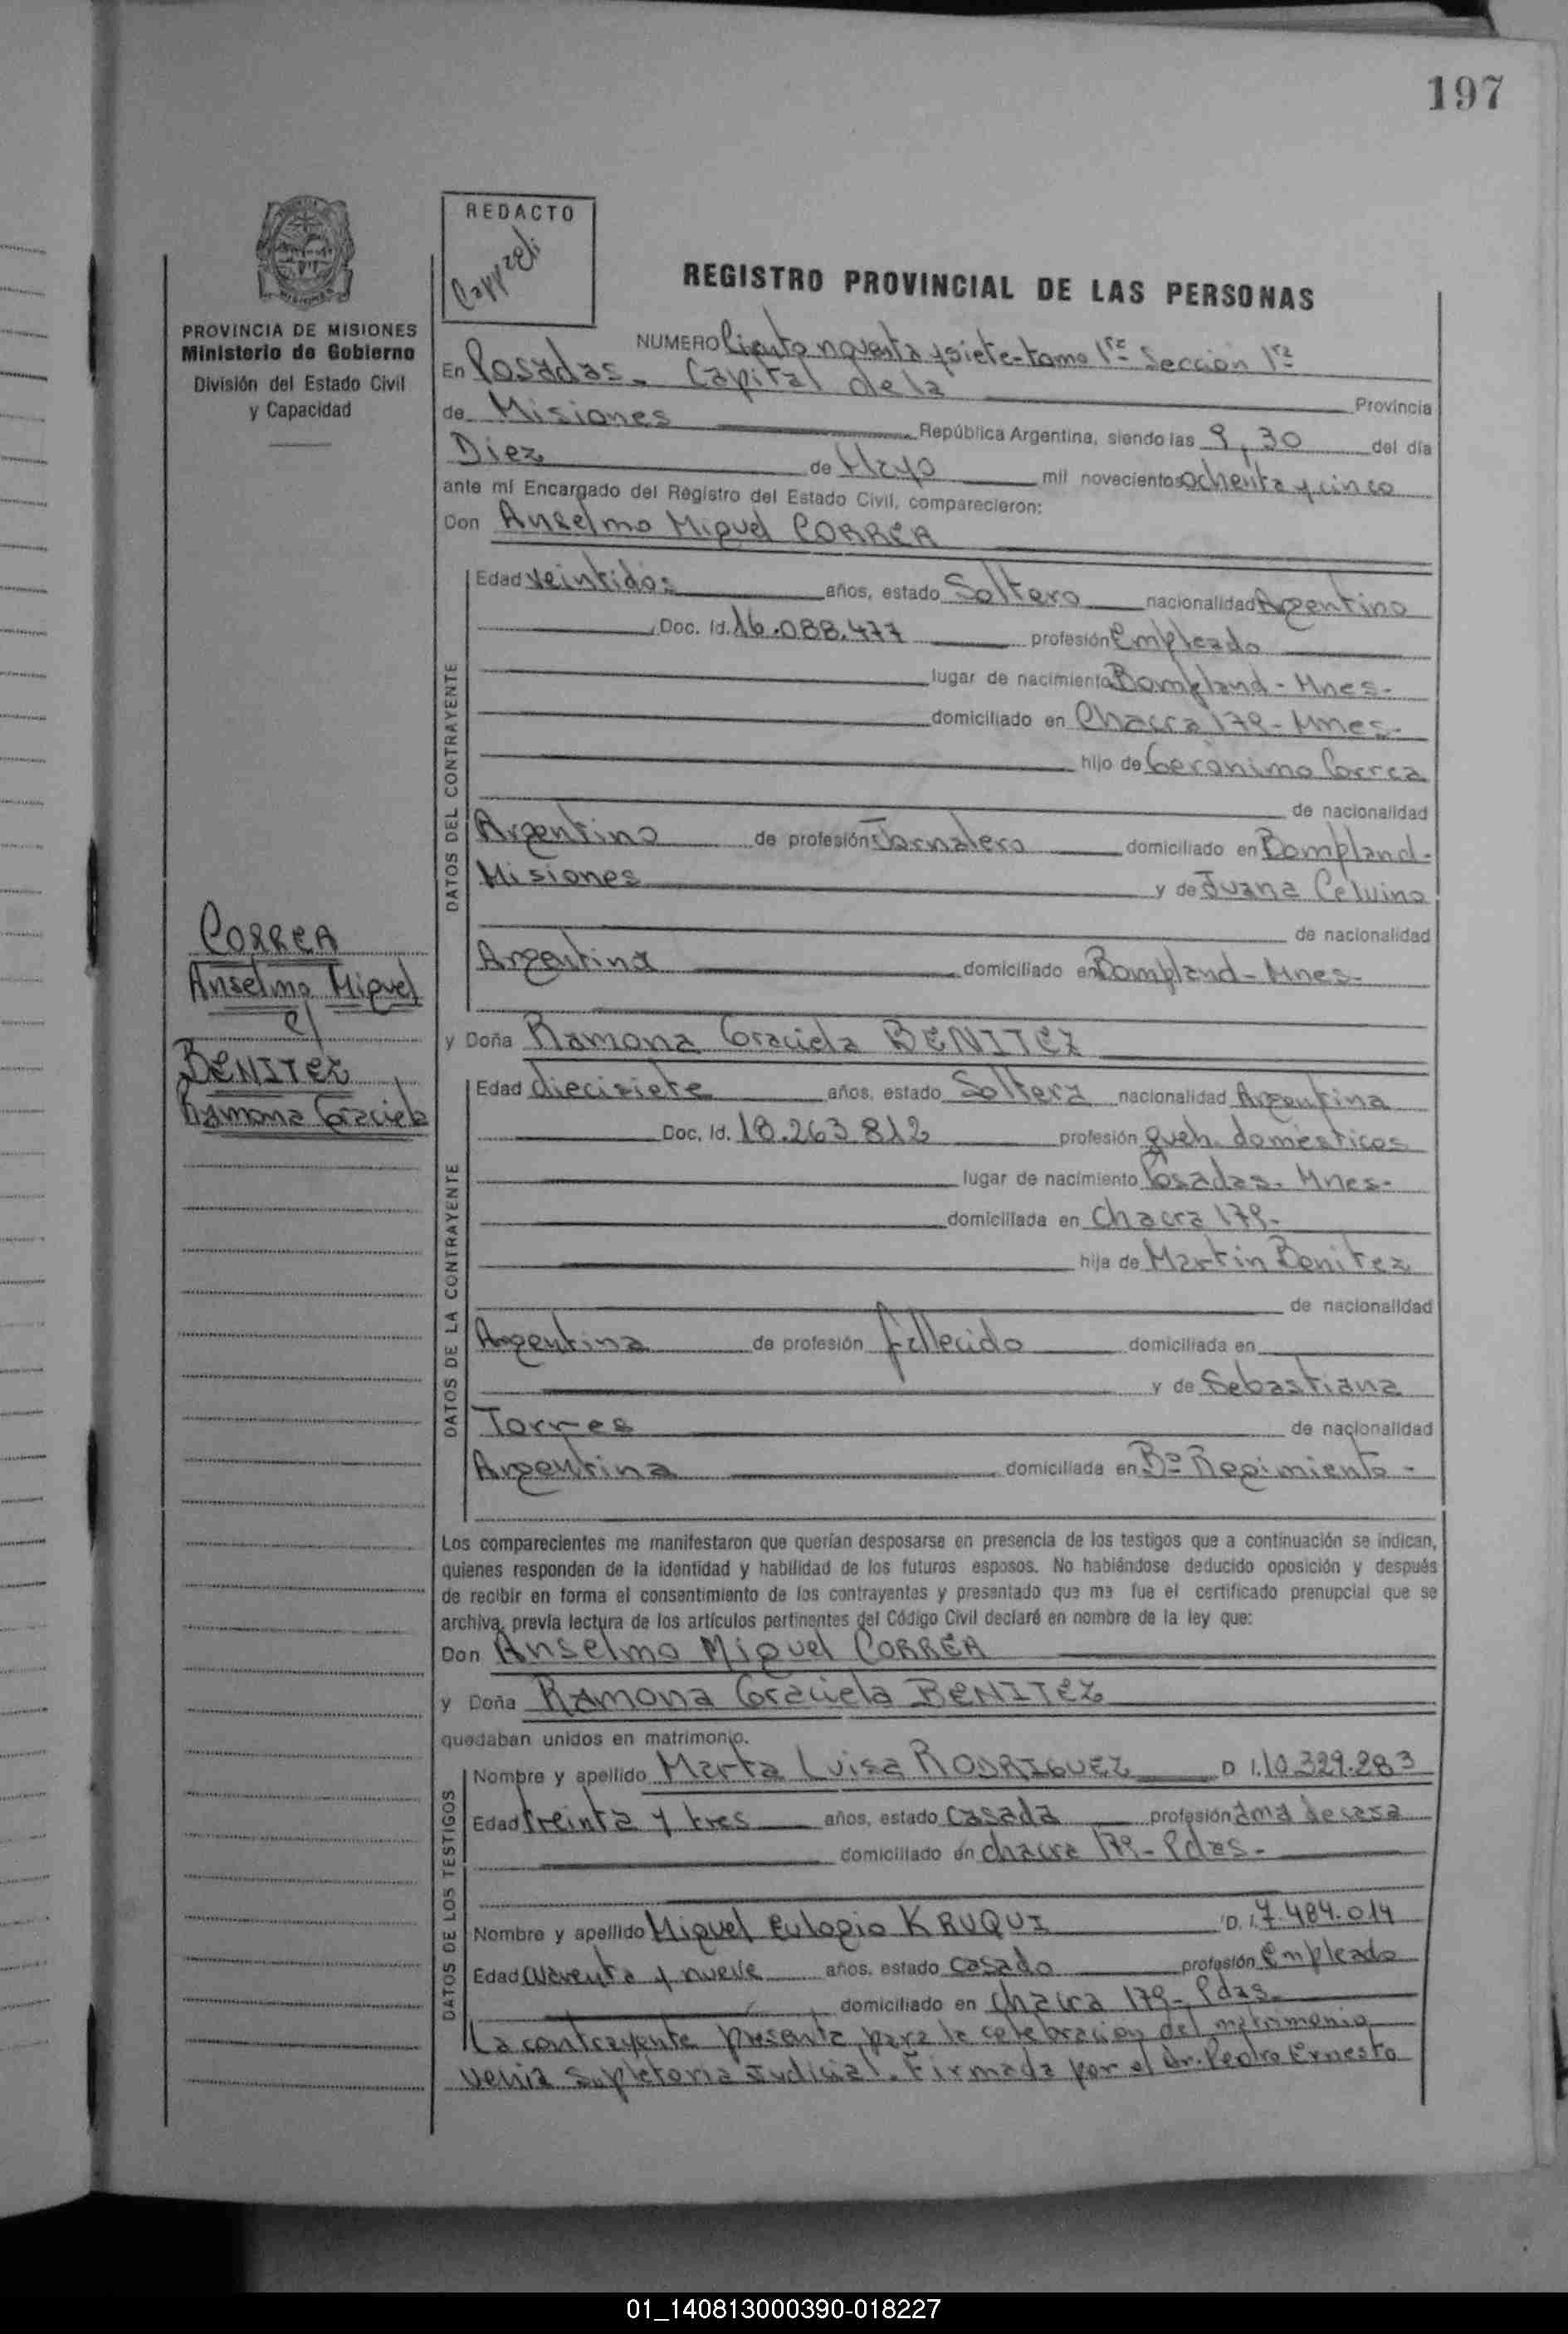 197
REDACTO
REGISTRO PROVINCIAL DE LAS PERSONAS
PROVINCIA DE MISIONES
Ministerio de Gobierno
División del Estado Civil
y Capacidad
NUMERO Ciento noventa y siete-tomo 1ro Sección 1ra
En Posadas. Capital de la Provincia
de Misiones República Argentina, siendo las 9,30 del día
Diez de Mayo mil novecientos ochenta y cinco
ante mí Encargado del Registro del Estado Civil, comparecieron:
Don Anselmo Miguel CORREA
DATOS DEL CONTRAYENTE
Edad veintidos años, estado Soltero nacionalidad Argentino
Doc. Id. 16.088.477 profesión Empleado
lugar de nacimiento Bompland - Mnes.
domiciliado en Chacra 179 - Mnes.
hijo de Gerónimo Correa
de nacionalidad
Argentino de profesión Jornalero domiciliado en Bompland.
Misiones y de Juana Celvina
de nacionalidad
Argentina domiciliado en Bompland - Mnes.
CORREA
Anselmo Miguel
c/
BENITEZ
Ramona Graciela
y Doña Ramona Graciela BENITEZ
DATOS DE LA CONTRAYENTE
Edad diecisiete años, estado Soltera nacionalidad Argentina
Doc. Id. 18.263.812 profesión queh. domésticos
lugar de nacimiento Posadas. Mnes.
domiciliada en Chacra 179.
hija de Martin Benitez
de nacionalidad
Argentina de profesión fallecido domiciliada en
y de Sebastiana
Torres de nacionalidad
Argentina domiciliada en Bº Regimiento.
Los comparecientes me manifestaron que querían desposarse en presencia de los testigos que a continuación se indican,
quienes responden de la identidad y habilidad de los futuros esposos. No habiéndose deducido oposición y después
de recibir en forma el consentimiento de los contrayentes y presentado que me fue el certificado prenupcial que se
archiva, previa lectura de los artículos pertinentes del Código Civil declaré en nombre de la ley que:
Don Anselmo Miguel CORREA
y Doña Ramona Graciela BENITEZ
quedaban unidos en matrimonio.
DATOS DE LOS TESTIGOS
Nombre y apellido Marta Luisa RODRIGUEZ D I. 10.329.283
Edad treinta y tres años, estado casada profesión ama de casa
domiciliado en chacra 179 - Pdas.
Nombre y apellido Miguel Eulogio KRUQUI D. I. 7.484.014
Edad cuarenta y nueve años, estado casado profesión Empleado
domiciliado en chacra 179 - Pdas.
La contrayente presenta para la celebración del matrimonio
venia supletoria Judicial. Firmada por el Dr. Pedro Ernesto
01_140813000390-018227